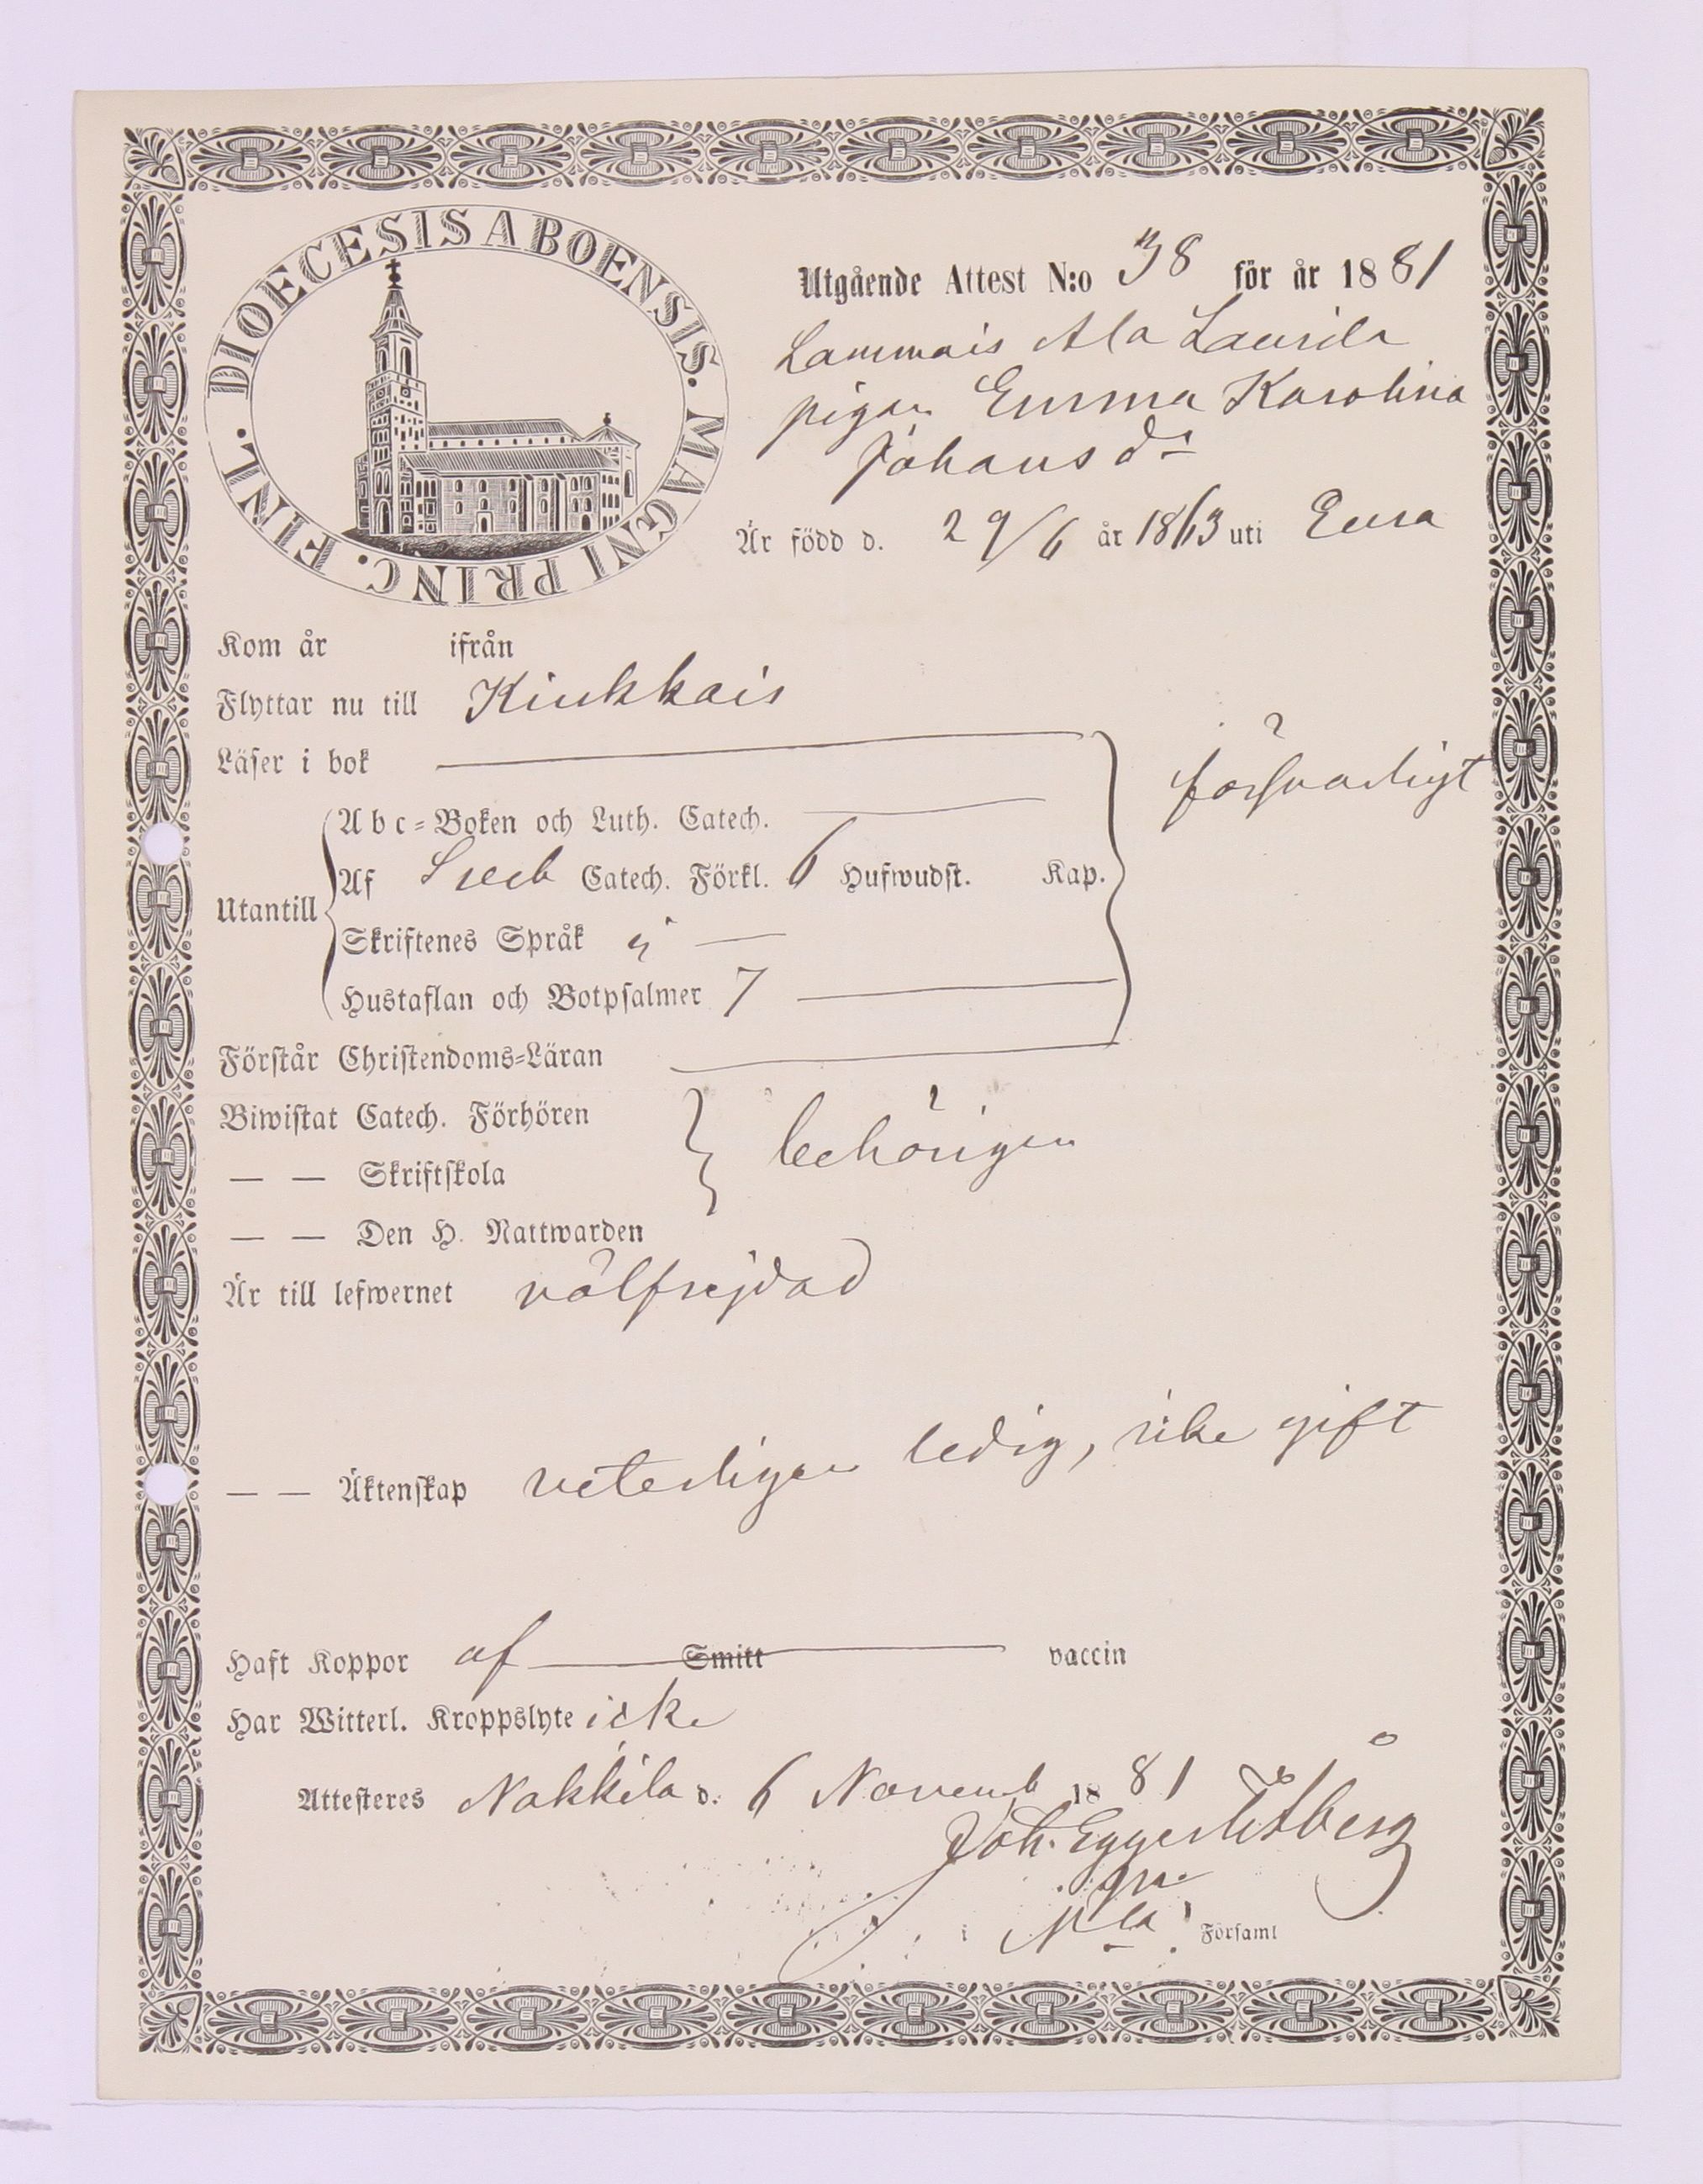 DIOECESIS ABOENSIS. MAGNI PRINC. FINL.
Utgående Attest N:o 38 för år 1881
Lammais Ala Laurila
pigan Emma Karolina
Johansdr
Är född d. 29/6 år 1863 uti Eura
Kom år ifrån
Flyttar nu till Kiukkais
Läser i bok
försvarligt
Abc-Boken och Luth. Catech.
Utantill
Af Sveb Catech. Förkl. 6 Hufwudst. Kap.
Skriftenes Språk
Hustaflan och Botpsalmer 7
Förstår Christendoms-Läran
Biwistat Catech. Förhören
behörigen
— — Skriftskola
— — Den H. Nattwarden
Är till lefwernet välfrejdad
— — Äktenskap veterligen ledig, icke gift
Haft Koppor af Smitt vaccin
Har Witterl. Kroppslyte icke
Attesteres Nakkila d. 6 Novemb 1881
Joh. Eggert
i Nla Församl